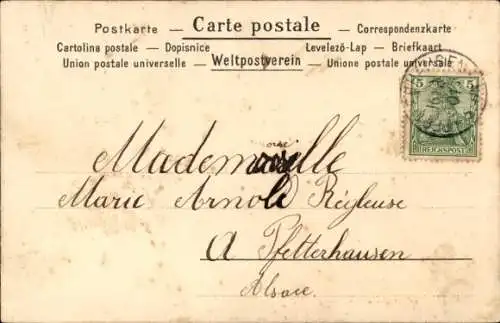 Postkarte — Carte postale — Correspondenzkarte
Cartolina postale — Dopisnice Levelező-Lap — Briefkaart
Union postale universelle — Weltpostverein — Unione postale universale
5 5
REICHSPOST
Mademoiselle
Marie Arnold Régleuse
A Pfetterhausen
Alsace.